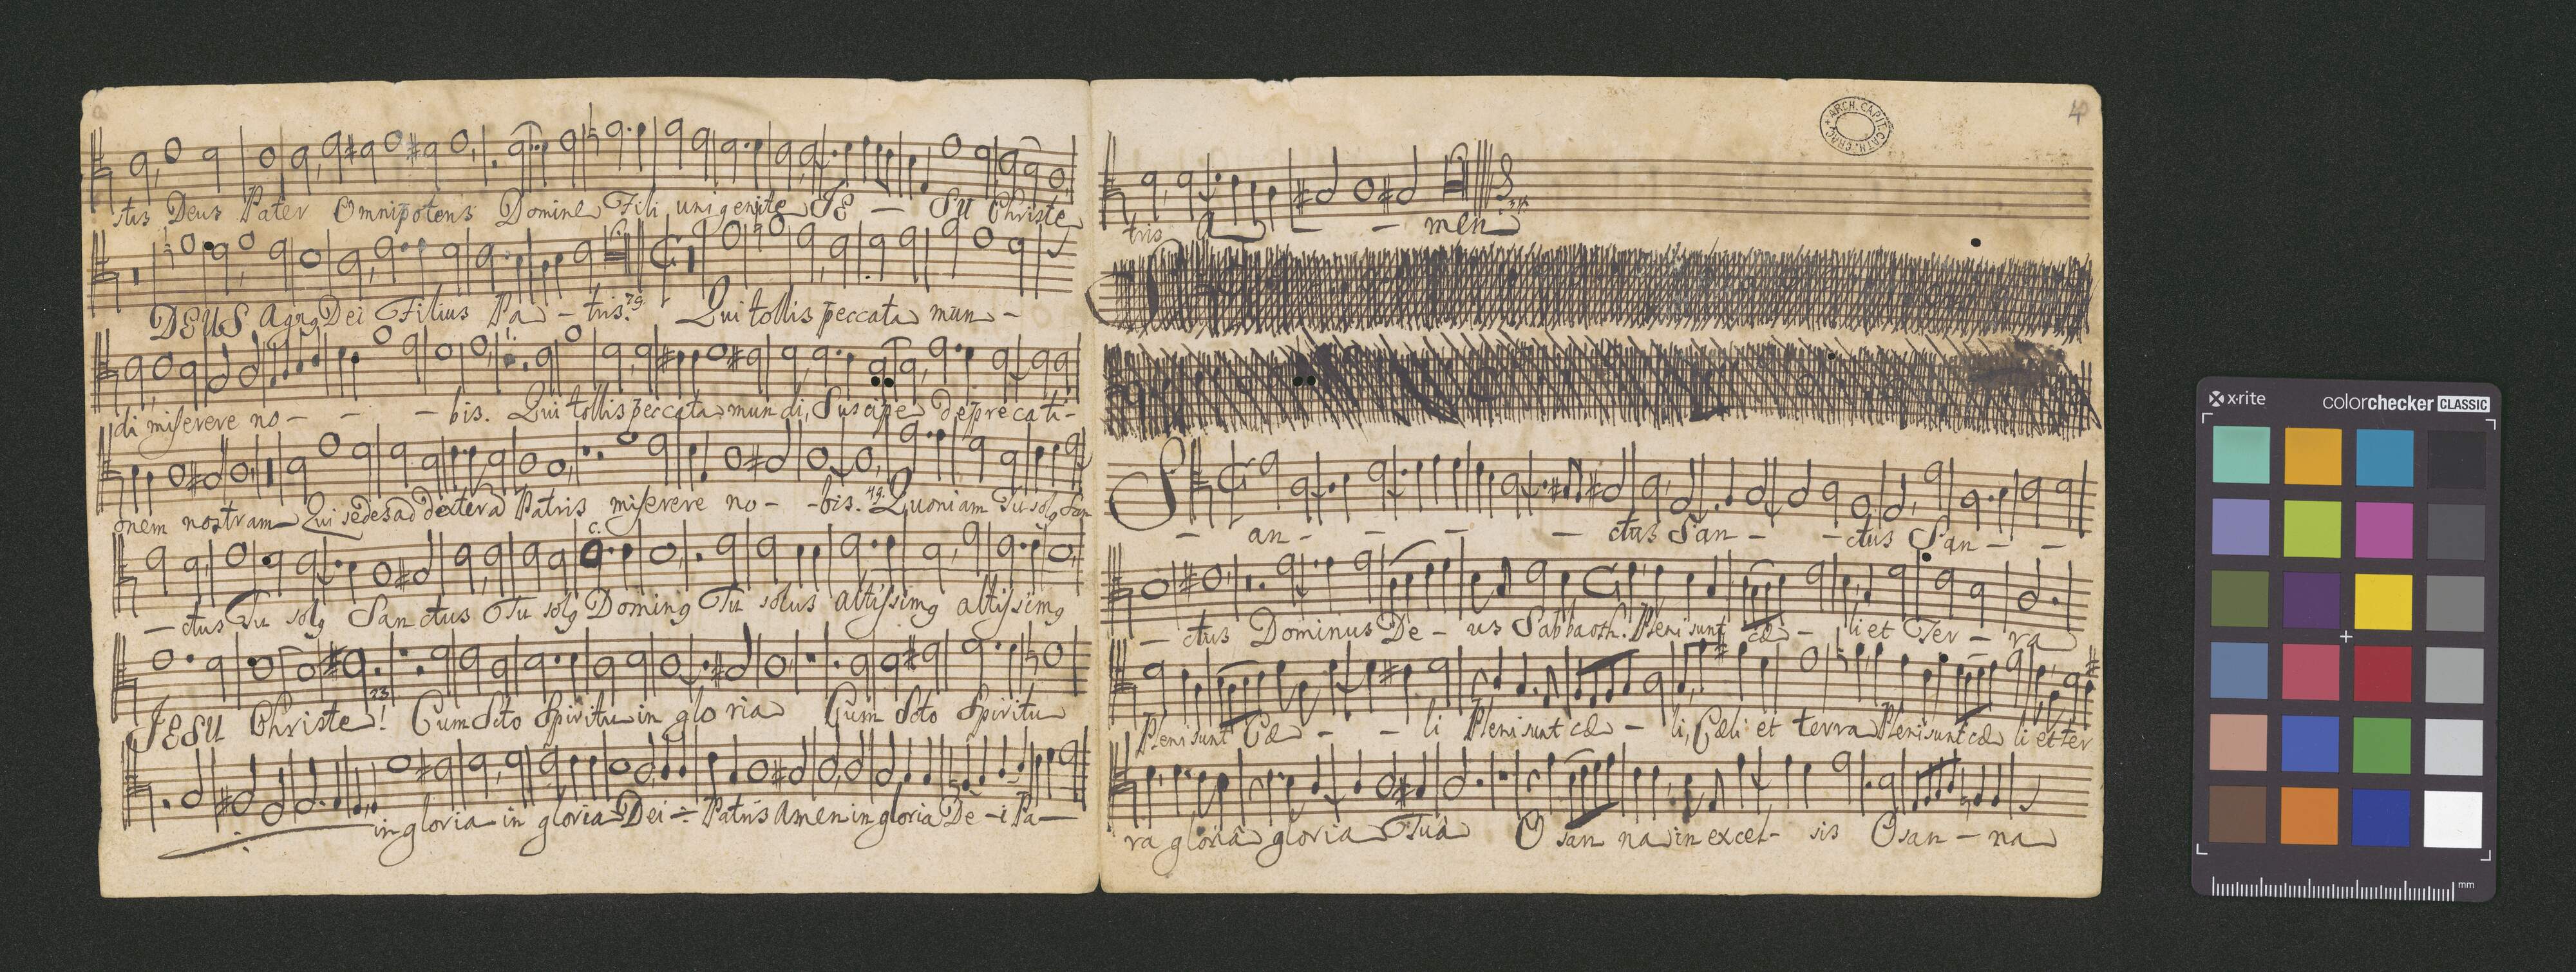 stis Deus Pater Omnipotens Domine Fili unigenite JE - SU Christe
DEUS Agng Dei Filius Pa - tris. 79. Qui tollis peccata mun -
di miserere no - - - bis. Qui tollis peccata mundi, Suscipe deprecati -
onem nostram Qui sedes ad dextera Patris miserere no - - bis. 49. Quoniam Tu solg San
c.
- ctus Tu solg Sanctus Tu solg Doming Tu solus altissimg altissimg
JESU Christe! 23 Cum Scto Spiritu in gloria Cum Scto Spiritu
in gloria in gloria Dei Patris Amen in gloria De - i Pa -
4
ARCH. CAPIT. CATH. CRAC.
tris A - - men
S - an - - - - ctus San - - ctus San - -
- ctus Dominus De - us Sabbaoth. Pleni sunt cæ - li et Ter - ra
Pleni sunt Cæ - - li Pleni sunt cæ - li, Cæli et terra Pleni sunt cæ li et ter
ra gloria gloria Tua O san na in excel - sis Osan - na
x-rite colorchecker CLASSIC
mm